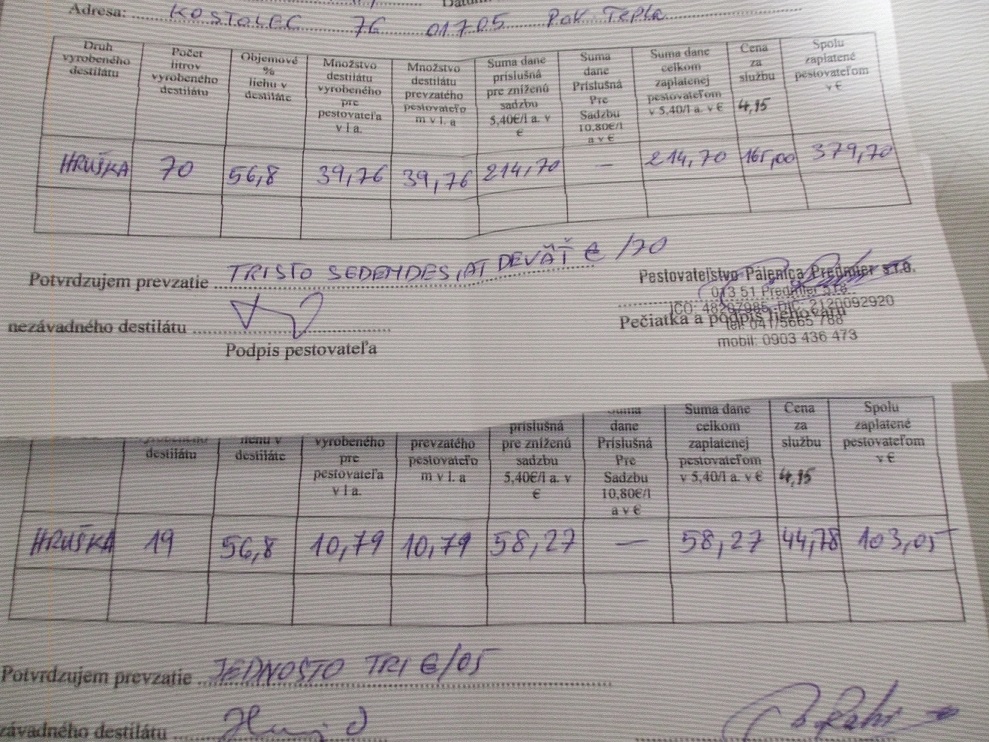 Adresa: KOSTOLEC 76 017 05 POV. TEPLÁ
Druh vyrobeného destilátu
Počet litrov vyrobeného destilátu
Objemové % liehu v destiláte
Množstvo destilátu vyrobeného pre pestovateľa v l a.
Množstvo destilátu prevzatého pestovateľo m v l. a
Suma dane príslušná pre zníženú sadzbu 5,40€/l a. v €
Suma dane Príslušná Pre Sadzbu 10,80€/l a v €
Suma dane celkom zaplatenej pestovateľom v 5,40/l a. v €
Cena za službu 4,15
Spolu zaplatené pestovateľom v €
HRUŠKA 70 56,8 39,76 39,76 214,70 — 214,70 165,00 379,70
Potvrdzujem prevzatie TRISTO SEDEMDESIAT DEVÄŤ € /70
nezávadného destilátu
Podpis pestovateľa
Pestovateľstvo Pálenica Predmier s.r.o.
013 51 Predmier
Pečiatka a podpis liehovaru
mobil: 0903 436 473
vyrobeného destilátu
liehu v destiláte
vyrobeného pre pestovateľa v l a.
prevzatého pestovateľo m v l. a
príslušná pre zníženú sadzbu 5,40€/l a. v €
Suma dane Príslušná Pre Sadzbu 10,80€/l a v €
Suma dane celkom zaplatenej pestovateľom v 5,40/l a. v €
Cena za službu 4,15
Spolu zaplatené pestovateľom v €
HRUŠKA 19 56,8 10,79 10,79 58,27 — 58,27 44,78 103,05
Potvrdzujem prevzatie JEDNOSTO TRI €/05
závadného destilátu